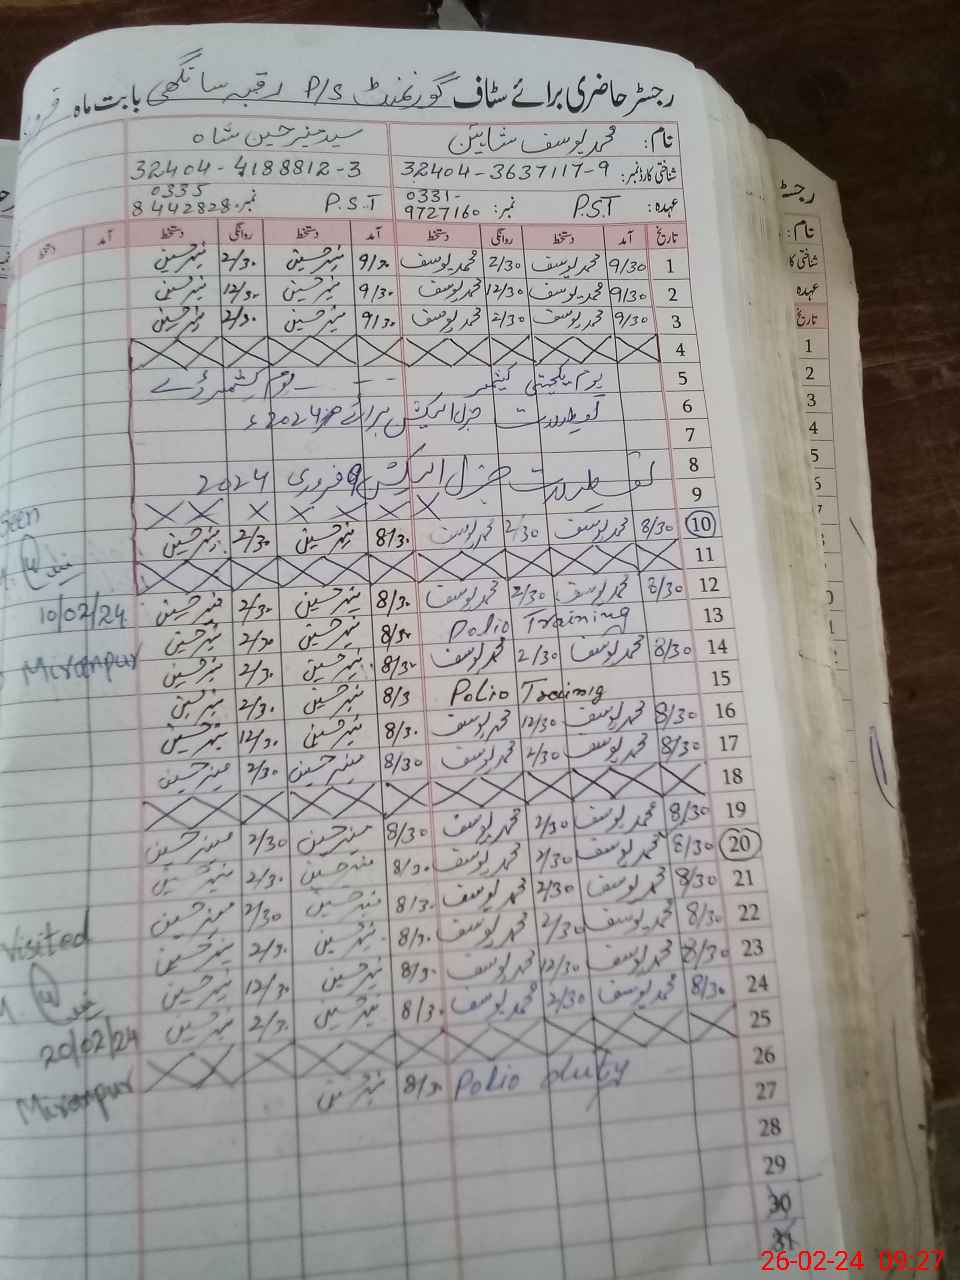 رجسٹر حاضری برائے سٹاف گورنمنٹ P/S رقبہ سانگھی بابت ماہ
نام: محمد یوسف شاہین سید منیر حسین شاہ
شناختی کارڈ نمبر: 32404-3637117-9 32404-4188812-3
عہدہ: P.S.T نمبر: 0331-9727160 P.S.T نمبر 0335 8442828
تاریخ آمد دستخط روانگی دستخط آمد دستخط روانگی دستخط آمد دستخط
1 9/30 محمد یوسف 2/30 محمد یوسف 9/30 منیر حسین 2/30 منیر حسین
2 9/30 محمد یوسف 12/30 محمد یوسف 9/30 منیر حسین 12/30 منیر حسین
3 9/30 محمد یوسف 2/30 محمد یوسف 9/30 منیر حسین 2/30 منیر حسین
4
5 یوم یکجہتی کشمیر یوم کشمیر ڈے
6 تعطیلات جنرل الیکشن برائے 2024ء
7
8 تعطیلات جنرل الیکشن 9 فروری 2024
9 X X X X X X X
Seen
10 8/30 محمد یوسف 2/30 محمد یوسف 8/30 منیر حسین 2/30 منیر حسین
11
12 8/30 محمد یوسف 2/30 محمد یوسف 8/30 منیر حسین 2/30 منیر حسین
10/02/24
13 Polio Training 8/30 منیر حسین 2/30 منیر حسین
14 8/30 محمد یوسف 2/30 محمد یوسف 8/30 منیر حسین 2/30 منیر حسین
Miranpur
15 Polio Trainig 8/3 منیر حسین 2/30 منیر حسین
16 8/30 محمد یوسف 12/30 محمد یوسف 8/30 منیر حسین 12/30 منیر حسین
17 8/30 محمد یوسف 2/30 محمد یوسف 8/30 منیر حسین 2/30 منیر حسین
18
19 8/30 محمد یوسف 2/30 محمد یوسف 8/30 منیر حسین 2/30 منیر حسین
20 8/30 محمد یوسف 2/30 محمد یوسف 8/30 منیر حسین 2/30 منیر حسین
21 8/30 محمد یوسف 2/30 محمد یوسف 8/30 منیر حسین 2/30 منیر حسین
22 8/30 محمد یوسف 2/30 محمد یوسف 8/30 منیر حسین 2/30 منیر حسین
Visited
23 8/30 محمد یوسف 12/30 محمد یوسف 8/30 منیر حسین 12/30 منیر حسین
24 8/30 محمد یوسف 2/30 محمد یوسف 8/30 منیر حسین 2/30 منیر حسین
25
20/02/24
26 Polio duty 8/30 منیر حسین
Miranpur
27
28
29
30
31
رجسٹ
نام:
شناختی کا
عہدہ
تاریخ
1
2
3
4
5
26-02-24 09:27